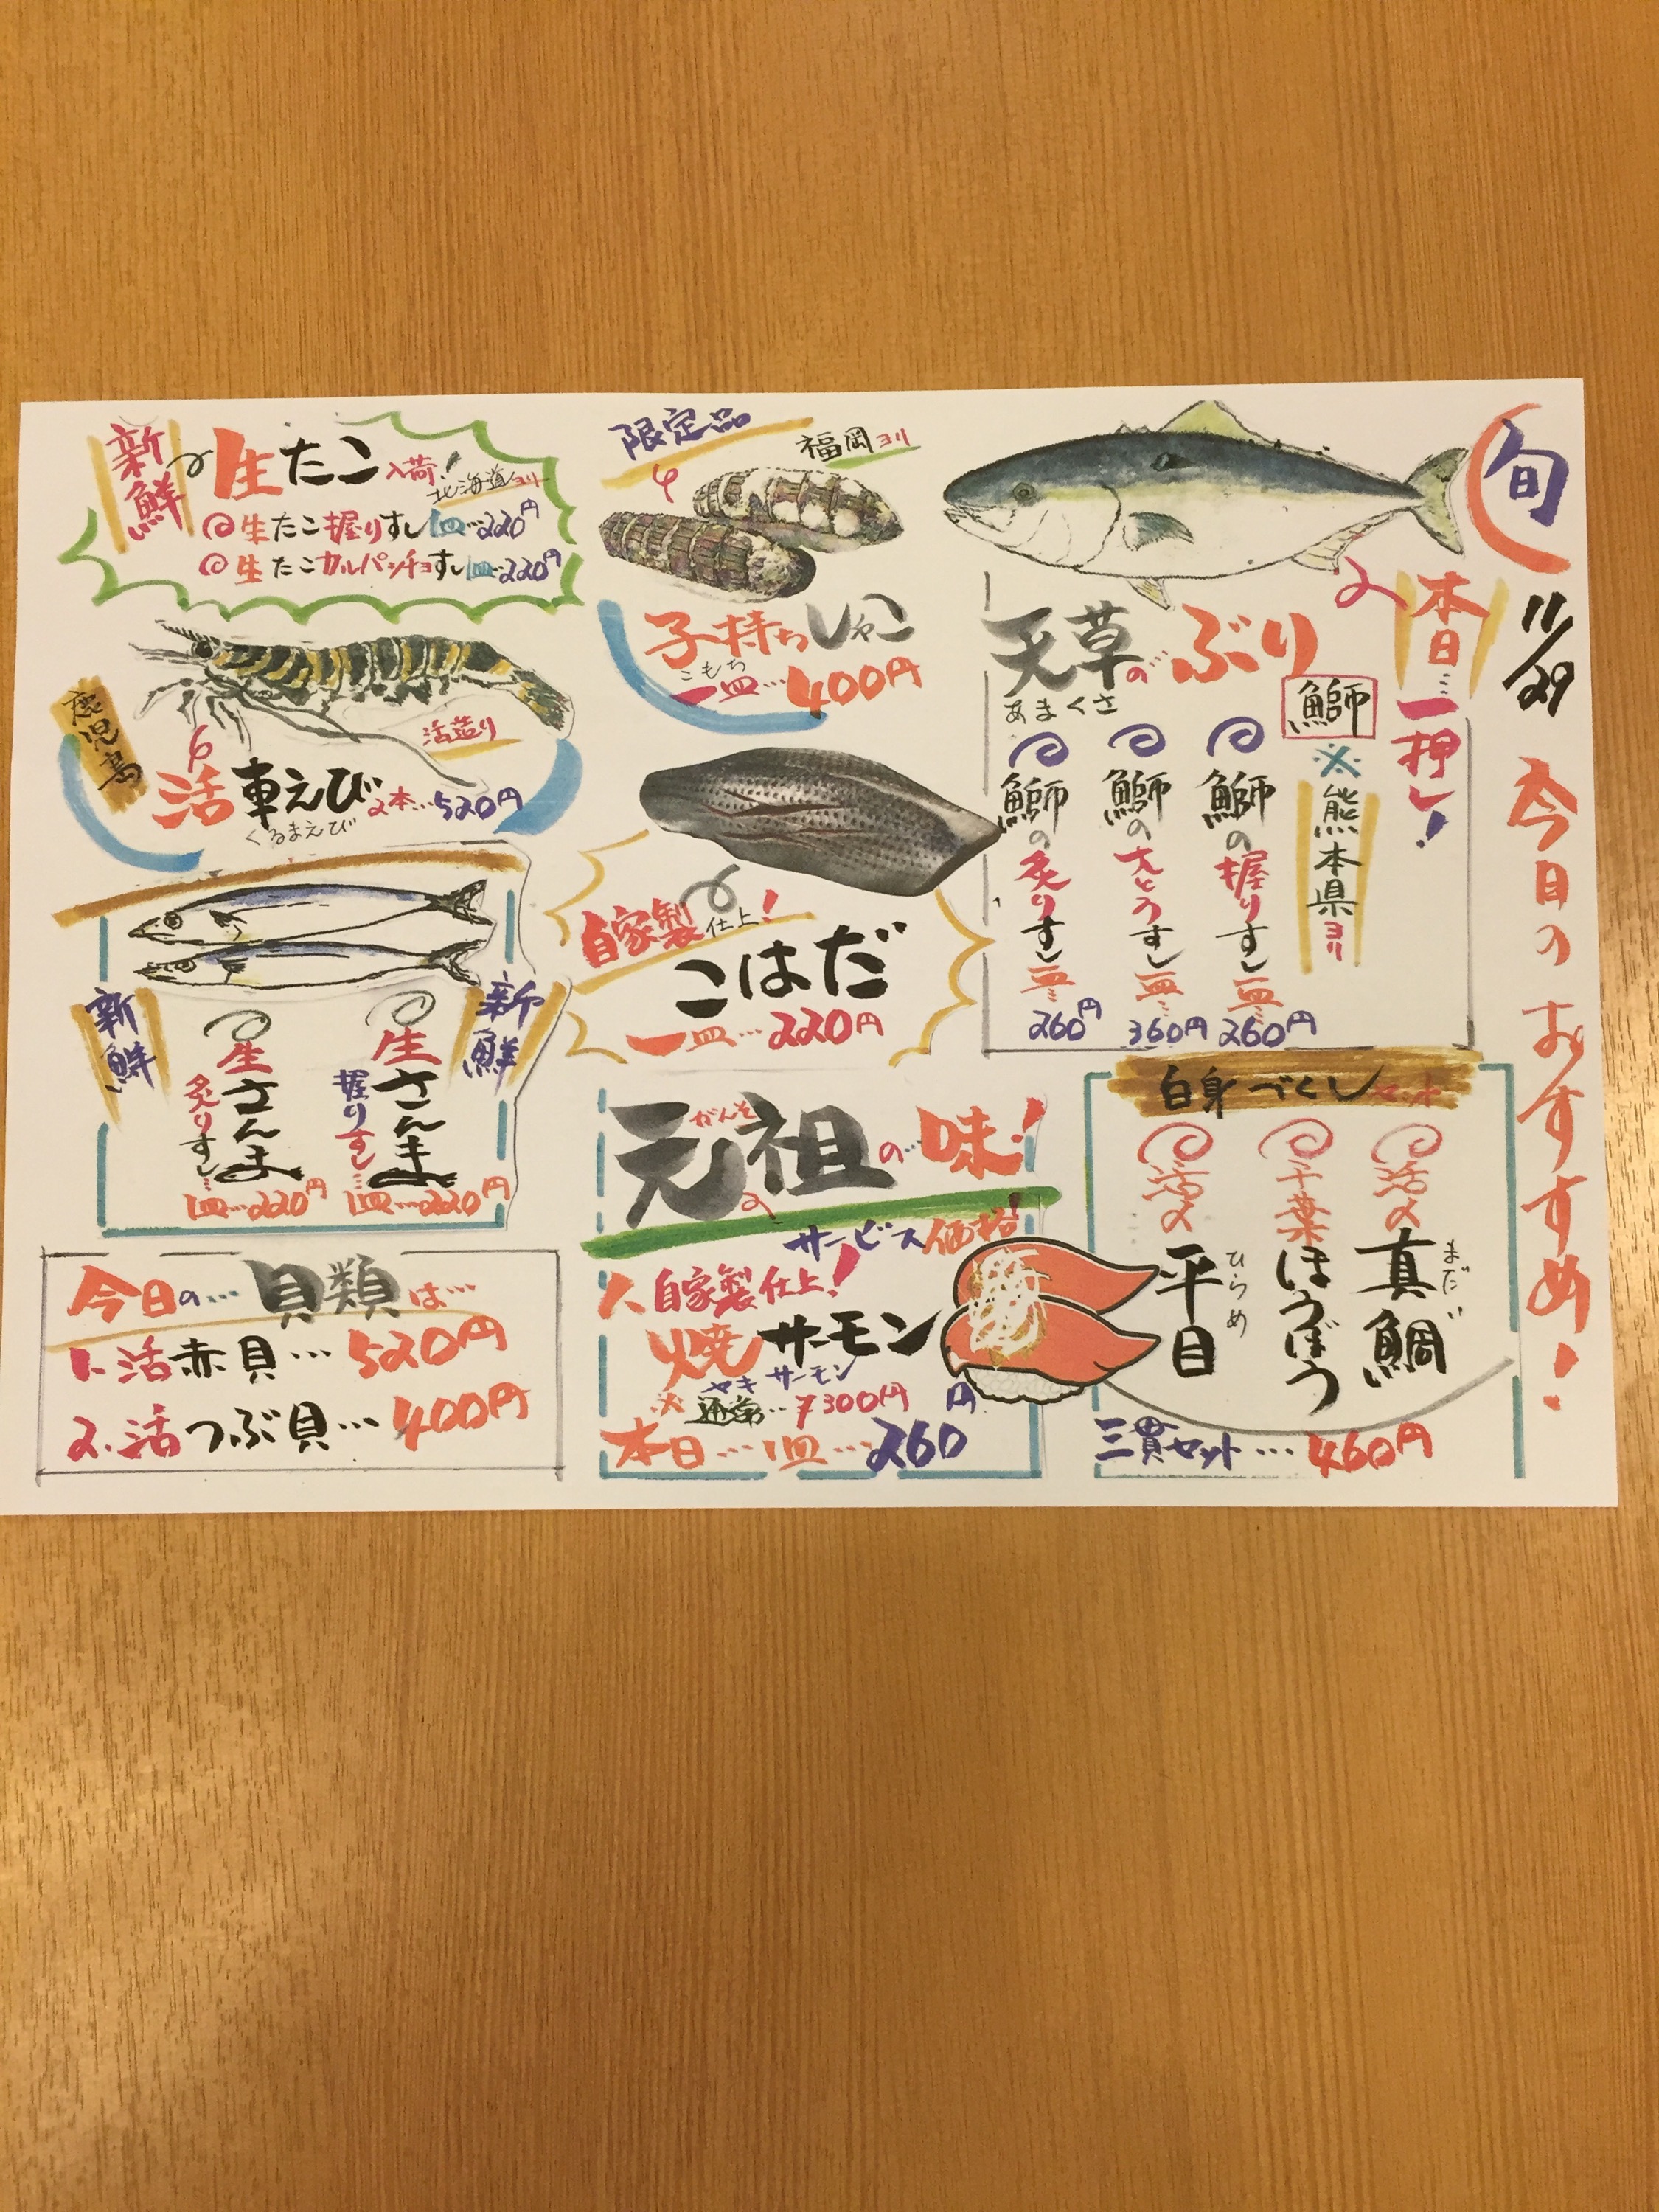 旬
11/29
今日のおすすめ!
本日…一押し!
天草のぶり
あまくさ
鰤
※熊本県ヨリ
鰤の握りすし一皿…260円
鰤の大とろすし一皿…360円
鰤の炙りすし一皿…260円
白身づくし
活〆真鯛
まだい
千葉ほうぼう
活〆平目
ひらめ
三貫セット…460円
限定品
福岡ヨリ
子持ちしゃこ
こもち
一皿…400円
自家製仕上!
こはだ
一皿…220円
元祖の…味!
がんそ
サービス価格!
自家製仕上!
焼サーモン
ヤキサーモン
※通常…300円
本日…1皿…260円
新鮮
生たこ入荷!
北海道ヨリ
生たこ握りすし1皿…220円
生たこカルパッチョすし1皿…220円
鹿児島
活造り
活車えび2本…520円
くるまえび
新鮮
新鮮
生さんま
握りすし…
1皿…220円
生さんま
炙りすし…
1皿…220円
今日の…貝類は…
1.活赤貝…520円
2.活つぶ貝…400円